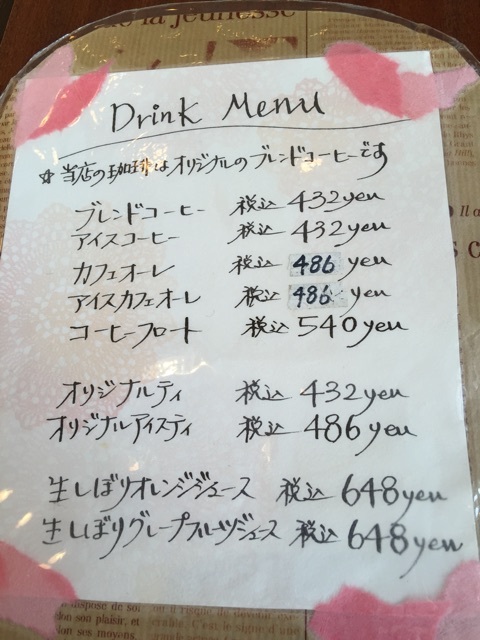 la jeunesse
Drink Menu
☆ 当店の珈琲はオリジナルのブレンドコーヒーです
ブレンドコーヒー 税込 432yen
アイスコーヒー 税込 432yen
カフェオーレ 税込 486 yen
アイスカフェオーレ 税込 486 yen
コーヒーフロート 税込 540yen
オリジナルティ 税込 432yen
オリジナルアイスティ 税込 486yen
生しぼりオレンジジュース 税込 648yen
生しぼりグレープフルーツジュース 税込 648yen